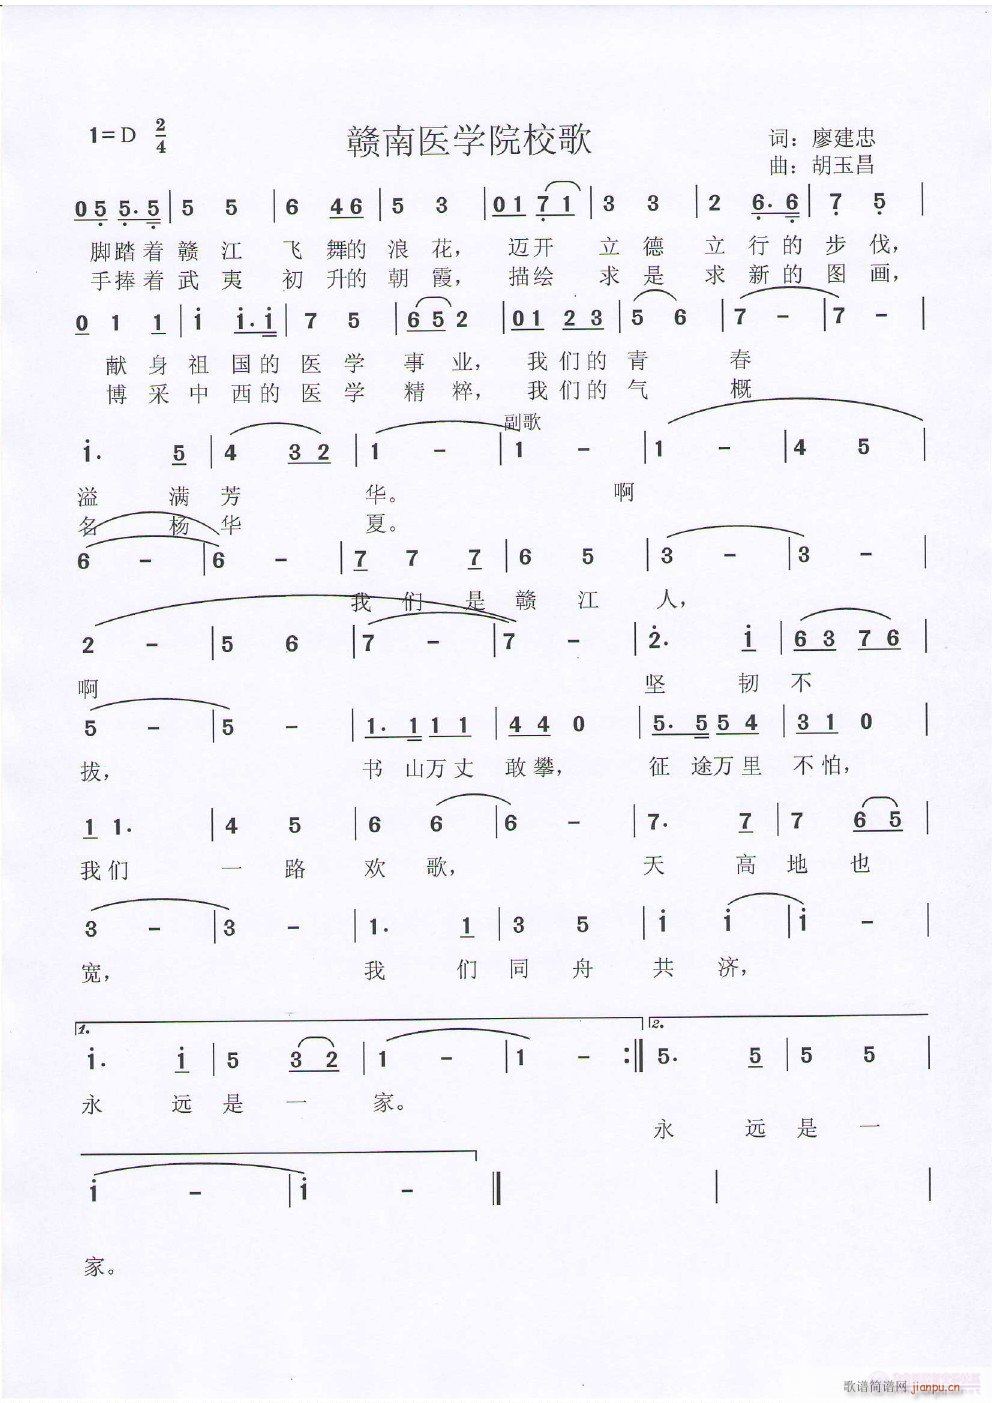 1=D 2/4 赣南医学院校歌 词：廖建忠
曲：胡玉昌
0 5 5. 5 | 5 5 | 6 4 6 | 5 3 | 0 1 7 1 | 3 3 | 2 6. 6 | 7 5 |
脚踏着赣江飞舞的浪花，迈开立德立行的步伐，
手捧着武夷初升的朝霞，描绘求是求新的图画，
0 1 1 | i i. i | 7 5 | 6 5 2 | 0 1 2 3 | 5 6 | 7 – | 7 – |
献身祖国的医学事业，我们的青春
博采中西的医学精粹，我们的气概
副歌
i. 5 | 4 3 2 | 1 – | 1 – | 1 – | 4 5 |
溢满芳华。啊
名杨华夏。
6 – | 6 – | 7 7 7 | 6 5 | 3 – | 3 – |
我们是赣江人，
2 – | 5 6 | 7 – | 7 – | 2. i | 6 3 7 6 |
啊 坚韧不
5 – | 5 – | 1. 1 1 1 | 4 4 0 | 5. 5 5 4 | 3 1 0 |
拔，书山万丈敢攀，征途万里不怕，
1 1. | 4 5 | 6 6 | 6 – | 7. 7 | 7 6 5 |
我们一路欢歌，天高地也
3 – | 3 – | 1. 1 | 3 5 | i i | i – |
宽，我们同舟共济，
1. 2.
i. i | 5 3 2 | 1 – | 1 – :‖ 5. 5 | 5 5 |
永远是一家。
永远是一
i – | i – ‖ | |
家。
歌谱简谱网 jianpu.cn